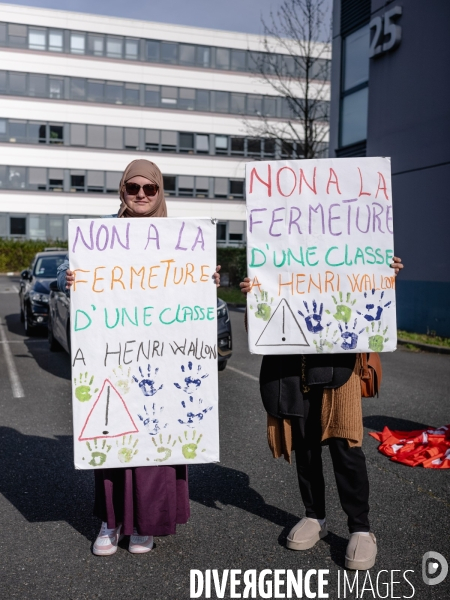 25
NON A LA
FERMETURE
D'UNE CLASSE
A HENRI WALLON
NON A LA
FERMETURE
D'UNE CLASSE
A HENRI WALLON
DIVERGENCE IMAGES